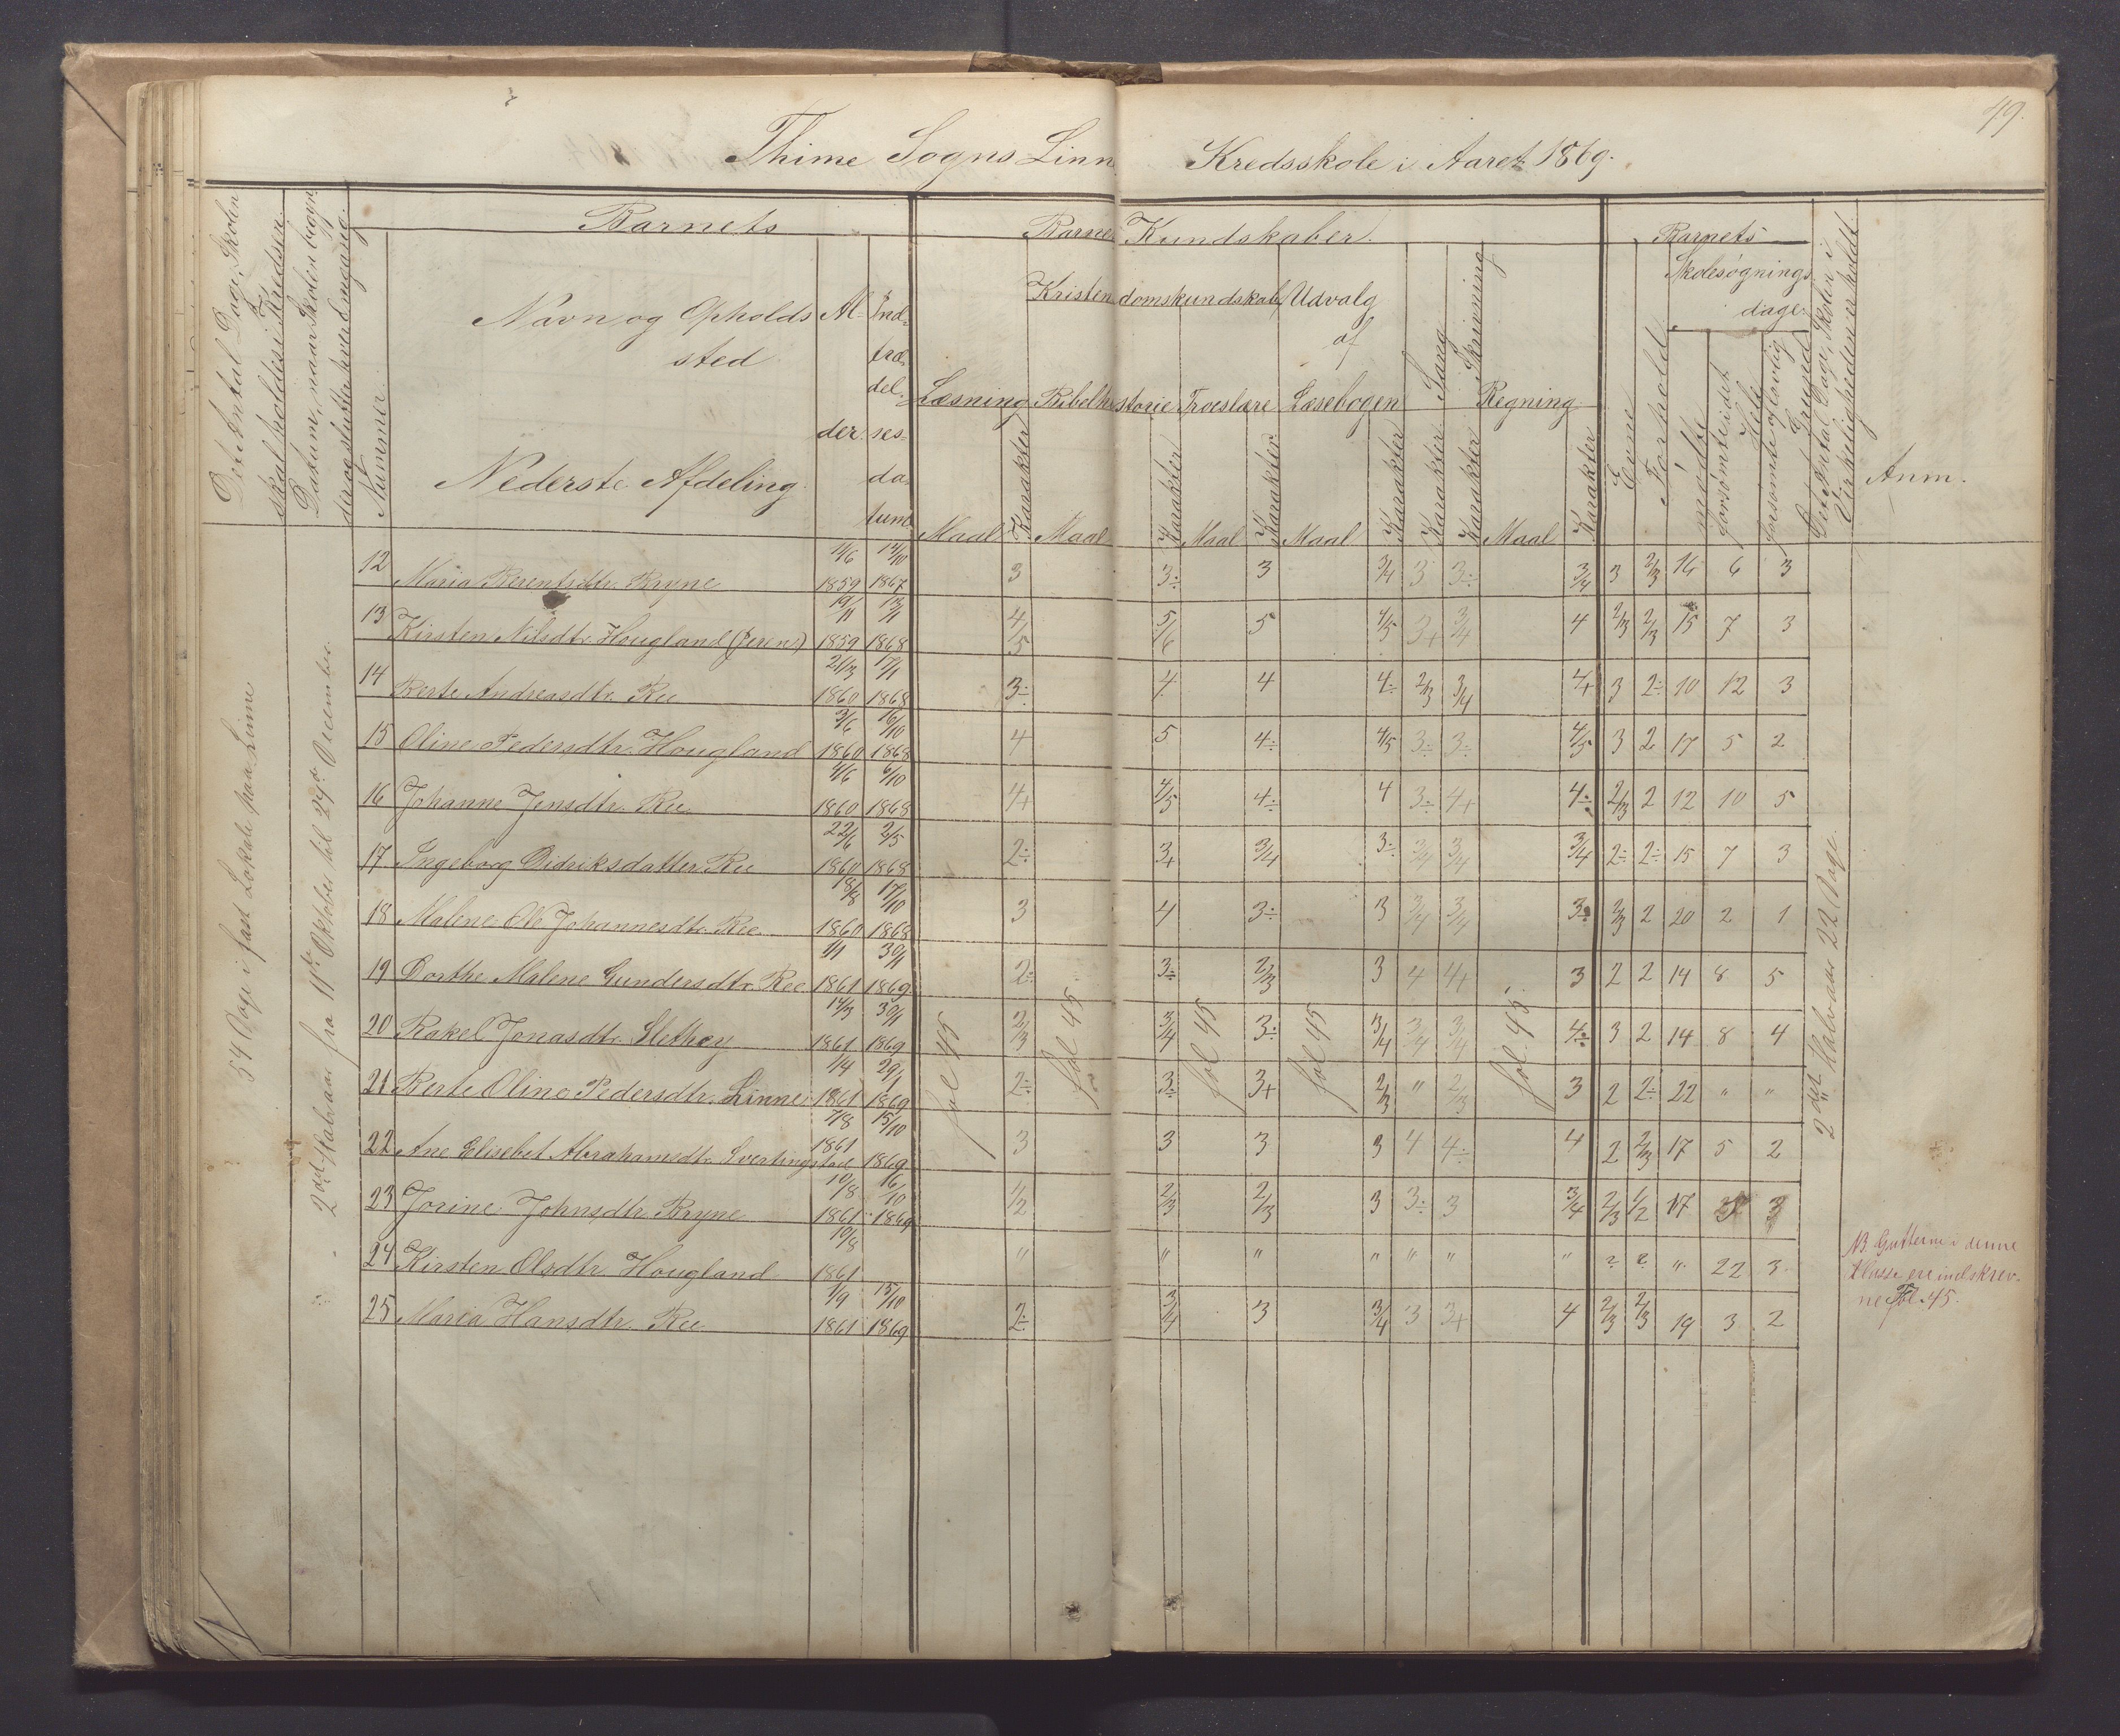 49.
Thime Sogns Linn Kredsskole i Aaret 1869.
Det Antal Dage, Skolen
skal holdes i Kredsen
Datum, naar Skolen begyn-
der og slutter hver Omgang
Nummer
Barnets
Navn og Opholds
sted
Nederste Afdeling
Al-
der.
Ind-
træ-
del-
ses-
da-
tum.
Barnets Kundskaber.
Læsning
Kristendomskundskab
Bibelhistorie
Troeslære
Udvalg
af
Læsebogen
Sang
Skrivning
Regning
Maal Karakter Maal Karakter Maal Karakter Maal Karakter Karakter Karakter Maal Karakter
Evne
Forhold
Barnets
Skolesøgnings
dage.
mødte
forsømte i det Hele
forsømte af lovlig Grund
Det Antal Dage, Skolen i
Virkeligheden er holdt
Anm.
54 Dage i fast Lokale paa Linne
2det Halvaar fra 11te Oktober til 29de December.
12 Maria Berentsdtr. Bryne 11/6 1859 14/10 1867 3 3÷ 3 3/4 3 3÷ 3/4 3 2/3 16 6 3
13 Kirsten Nilsdtr. Hougland (Jerens) 19/11 1859 13/1 1868 4/5 5/6 5 4/5 3+ 3/4 4 2/3 2/3 15 7 3
14 Berte Andreasdtr. Ree 21/3 1860 17/1 1868 3÷ 4 4 4÷ 2/3 3/4 4+ 3 2÷ 10 12 3
15 Oline Pedersdtr. Hougland 3/6 1860 16/10 1868 4 5 4÷ 4/5 3÷ 3÷ 4/5 3 2 17 5 2
16 Johanne Jensdtr. Ree 4/6 1860 6/10 1868 4+ 4/5 4÷ 4 3÷ 4+ 4÷ 2/3 2 12 10 5
17 Ingeborg Didriksdatter Ree 22/6 1860 2/5 1868 2÷ 3+ 3/4 3÷ 3/4 3/4 3/4 2÷ 2÷ 15 7 3
18 Malene Johannesdtr. Ree 18/8 1860 17/10 1868 3 4 3÷ 3 3/4 3/4 3÷ 2/3 2 20 2 1
19 Dorthe Malene Gundersdtr. Ree 1/1 1861 30/1 1869. 2÷ 3÷ 2/3 3 4 4+ 3 2 2 14 8 5
20 Rakel Jonasdtr. Slethey 14/3 1861 30/1 1869 2/3 3/4 3÷ 3/4 3/4 3/4 4÷ 3 2 14 8 4
21 Berte Oline Pedersdtr. Linne 1/4 1861 29/1 1869 2÷ 3÷ 3+ 2/3 " 2/3 3 2 2÷ 22 " "
22 Ane Elisebet Abrahamsdtr. Svertingstad 7/8 1861 15/10 1869. 3 3 3 3 4 4÷ 4 2 2/3 17 5 2
23 Jorine Johnsdtr. Bryne 10/8 1861 16/10 1869 1/2 2/3 2/3 3 3÷ 3 3/4 2/3 1/2 17 5 3
24 Kirsten Olsdtr. Hougland 10/8 1861 " " " " " " " ? ? " 22 3
25 Maria Hansdtr. Ree 1/9 1861 15/10 1869 2÷ 3/4 3 3/4 3 3+ 4 2/3 2/3 19 3 2
fol 45
fol 45
fol 45
fol 45
fol. 45.
2det Halvaar 22 Dage.
NB. Gutterne i denne
Klasse ere indskrev-
ne Fol. 45.